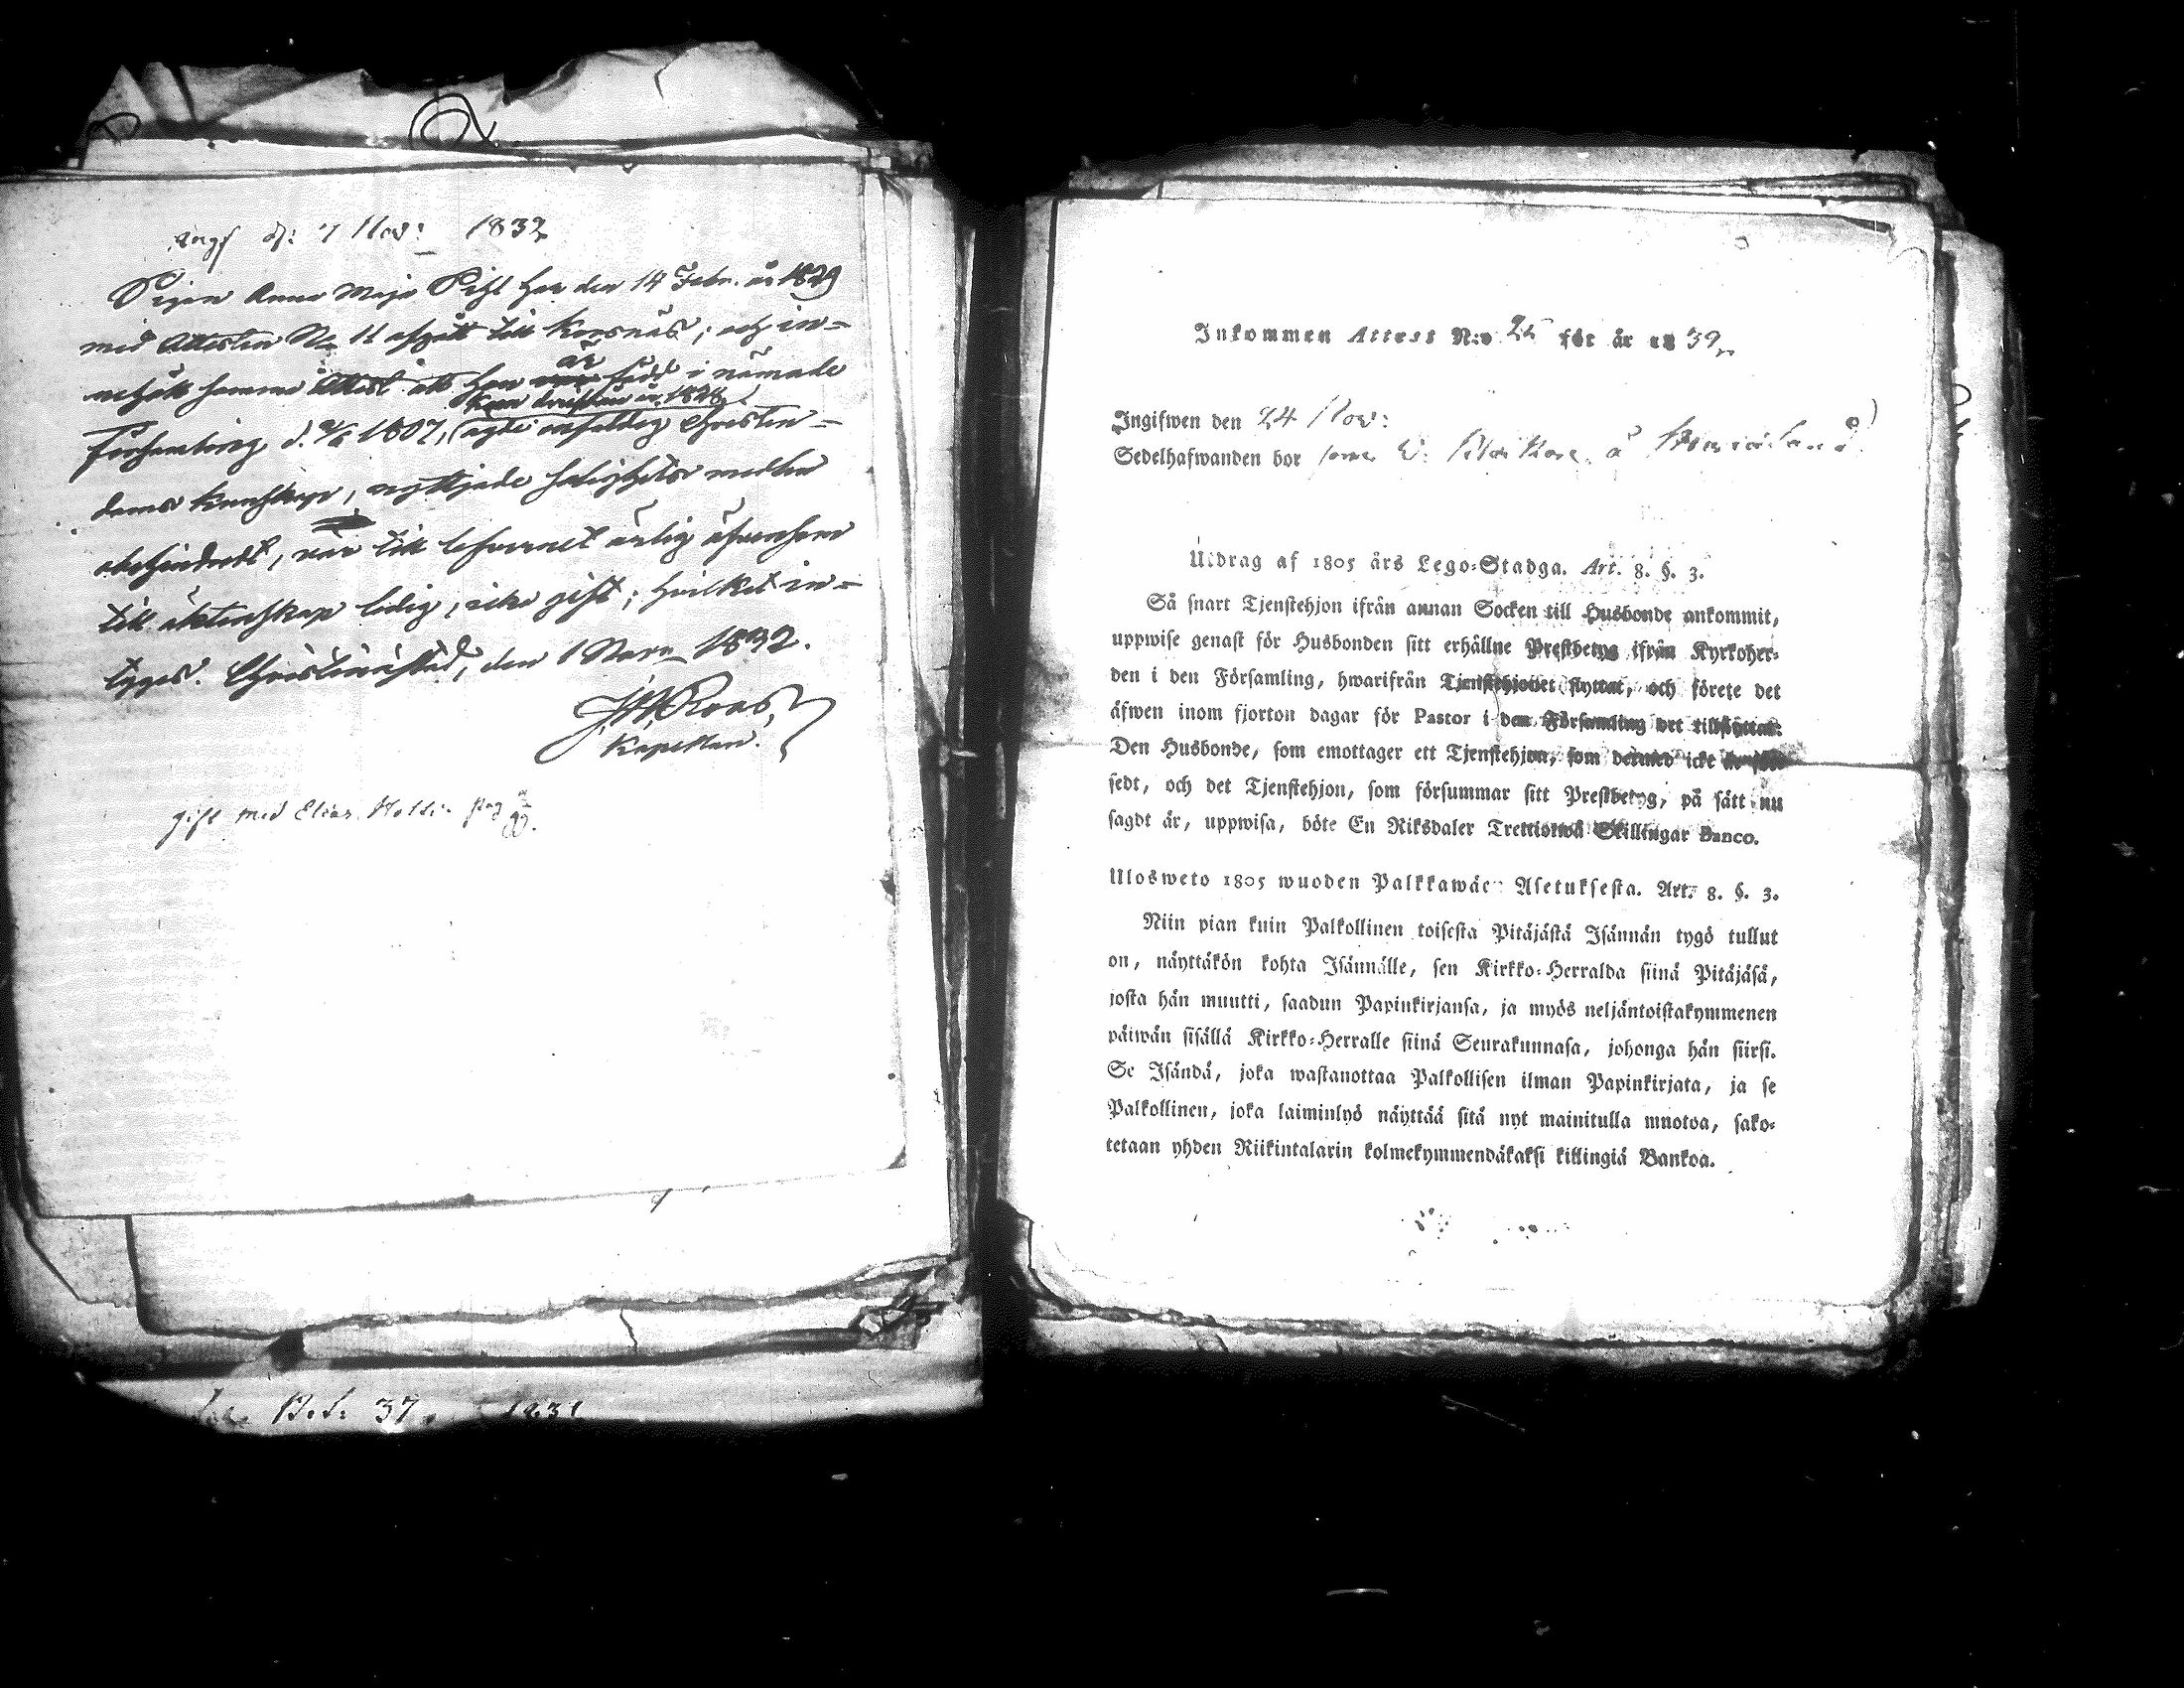 d: 7 Nov: 1832
Pigan Anna Maja Pihl har den 14 Febr. år 1829
med Attesten No 11 afgått till Korsnäs; och in-
nehöll samma Attest att hon är född i nämnde
kom dit år 1828
Församling d. 1807, ägde enfaldig Christen-
doms kunskap, nyttjade salighets medlen
obehindradt, var till lefvernet ärlig äfvensom
till äktenskap ledig, icke gift; hvilket in-
tygas. Christinestad, den 1 Novr 1832.
Roos,
Kapellan.
gift med Elias Holli pag
37. 1831
Inkommen Attest N:o 25 för år 18 32
Ingifwen den 24 Nov:
Sedelhafwanden bor
Utdrag af 1805 års Lego-Stadga. Art. 8. §. 3.
Så snart Tjenstehjon ifrån annan Socken till Husbonde ankommit,
uppwise genast för Husbonden sitt erhållne Prestbetyg ifrån Kyrkoher-
den i den Församling, hwarifrån Tjenstehjonet flyttat, och förete det
äfwen inom fjorton dagar för Pastor i den Församling det tillflyttat:
Den Husbonde, som emottager ett Tjenstehjon, som dermed icke är för-
sedt, och det Tjenstehjon, som försummar sitt Prestbetyg, på sätt nu
sagdt är, uppwisa, böte En Riksdaler Trettiotwå Skillingar Banco.
Ulosweto 1805 wuoden Palkkawäen Asetuksesta. Art. 8. §. 3.
Niin pian kuin Palkollinen toisesta Pitäjästä Isännän tygö tullut
on, näyttäkön kohta Isännälle, sen Kirkko-Herralda siinä Pitäjäsä,
josta hän muutti, saadun Papinkirjansa, ja myös neljäntoistakymmenen
päiwän sisällä Kirkko-Herralle siinä Seurakunnasa, johonga hän siirsi.
Se Isändä, joka wastanottaa Palkollisen ilman Papinkirjata, ja se
Palkollinen, joka laiminlyö näyttää sitä nyt mainitulla muotoa, sako-
tetaan yhden Riikintalarin kolmekymmendäkaksi killingiä Bankoa.